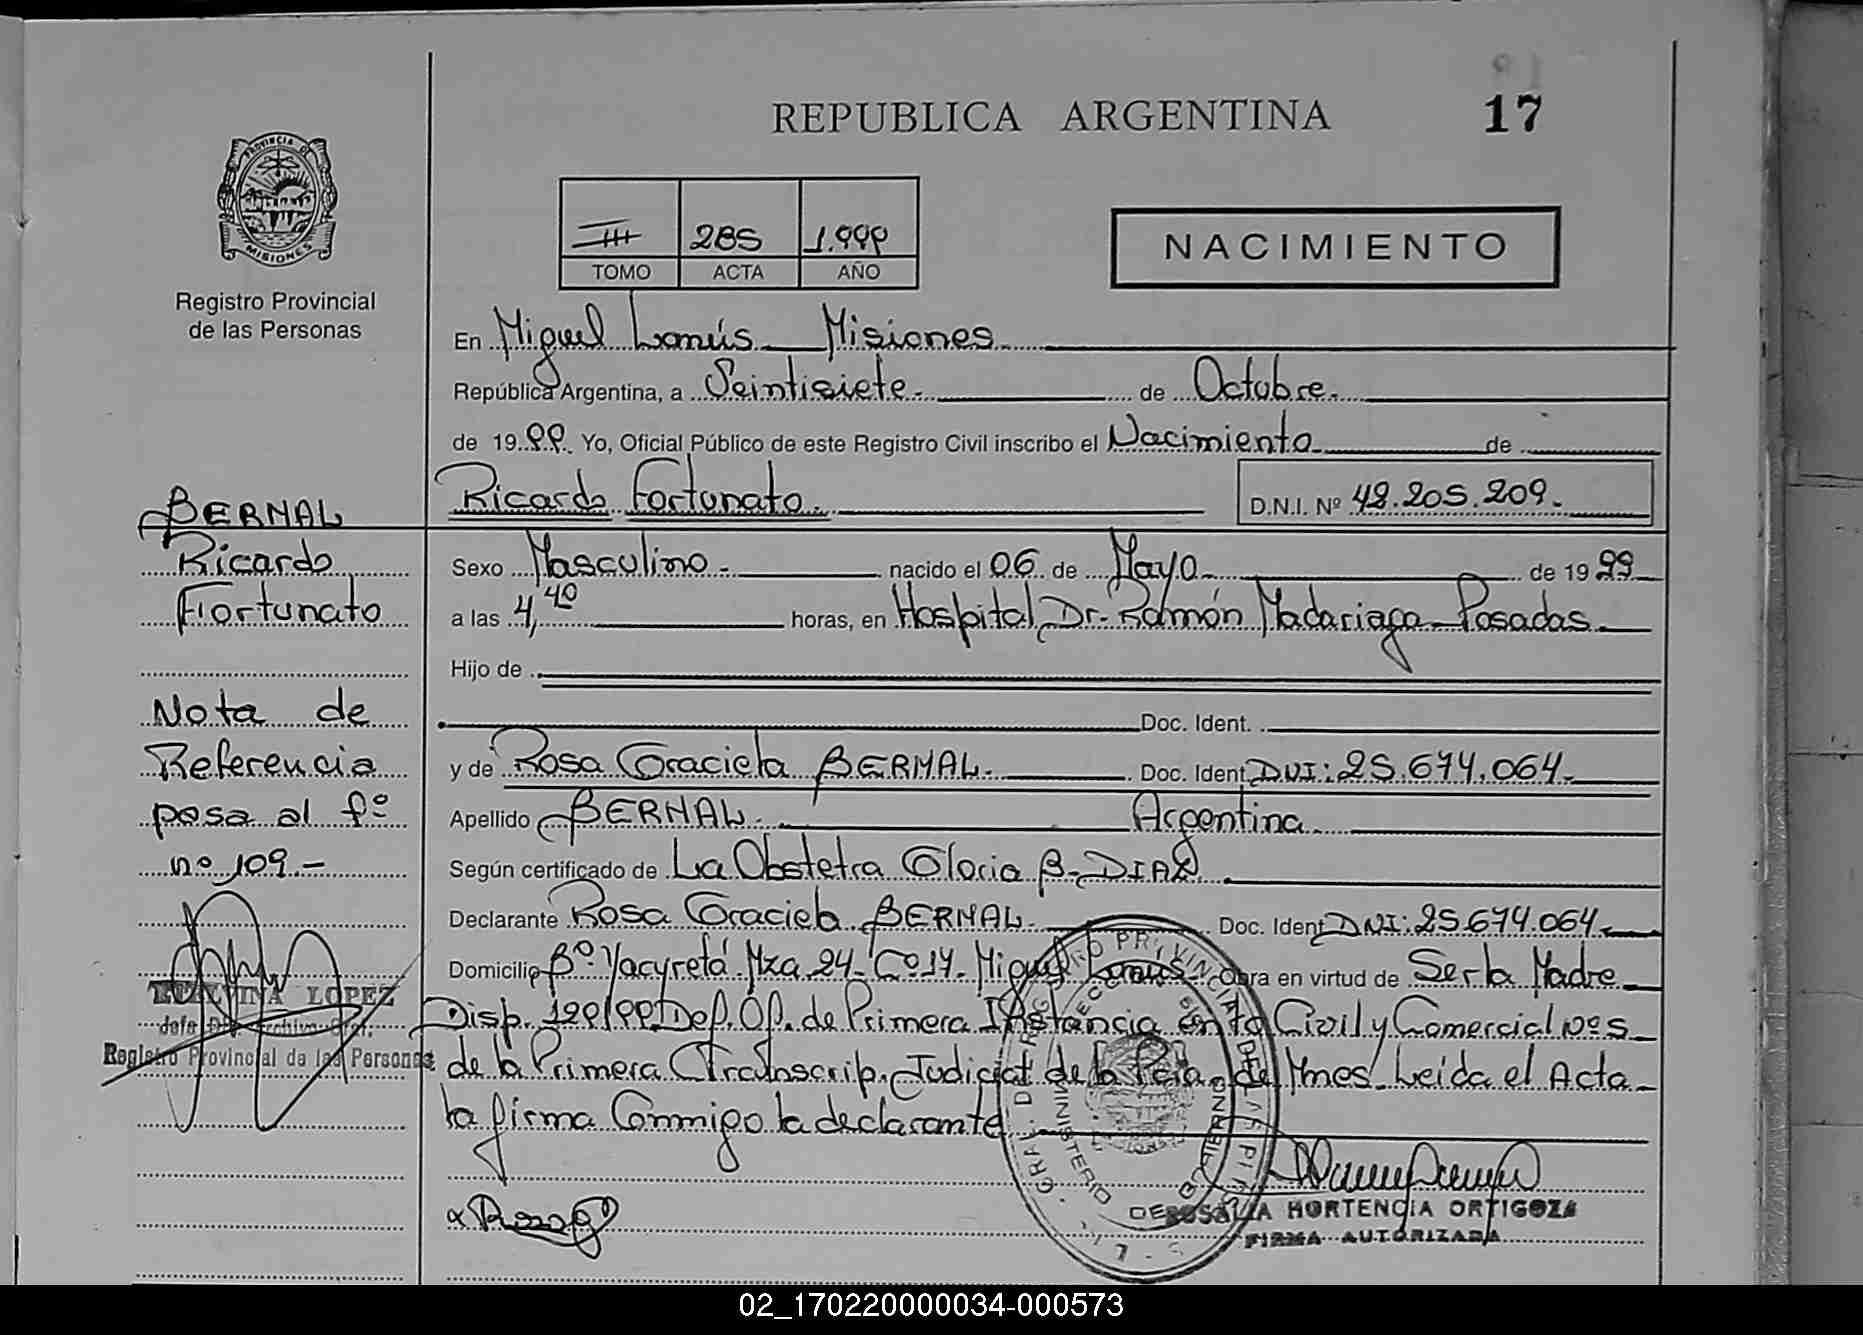 REPUBLICA ARGENTINA
17
PROVINCIA DE
MISIONES
Registro Provincial
de las Personas
III 285 1.999
TOMO ACTA AÑO
NACIMIENTO
En Miguel Lanús Misiones
República Argentina, a Veintisiete. de Octubre.
de 19 99 Yo, Oficial Público de este Registro Civil inscribo el Nacimiento de
Ricardo Fortunato. D.N.I. Nº 42.205.209.
Sexo Masculino. nacido el 06 de Mayo de 19 99
a las 4,40 horas, en Hospital Dr. Ramón Madariaga Posadas
Hijo de
Doc. Ident.
y de Rosa Graciela BERNAL. Doc. Ident. DNI: 25.674.064.
Apellido BERNAL. Argentina.
Según certificado de La Obstetra Gloria B. DIAZ.
Declarante Rosa Graciela BERNAL. Doc. Ident. DNI: 25.674.064.
Domicilio Bº Yacyretá Mza 24 Cº 14. Miguel Lanus Obra en virtud de Ser la Madre
Disp. 129/99 Def. Of. de Primera Instancia en lo Civil y Comercial nº 5
de la Primera Judicial de la Pcia. de Mnes. Leída el Acta
la firma Conmigo la declarante
ROSALIA HORTENCIA ORTIGOZA
FIRMA AUTORIZADA
BERNAL
Ricardo
Fortunato
Nota de
Referencia
pasa al fº
nº 109.-
LOPEZ
Jefe Archivo Gral.
Registro Provincial de las Personas
02_170220000034-000573